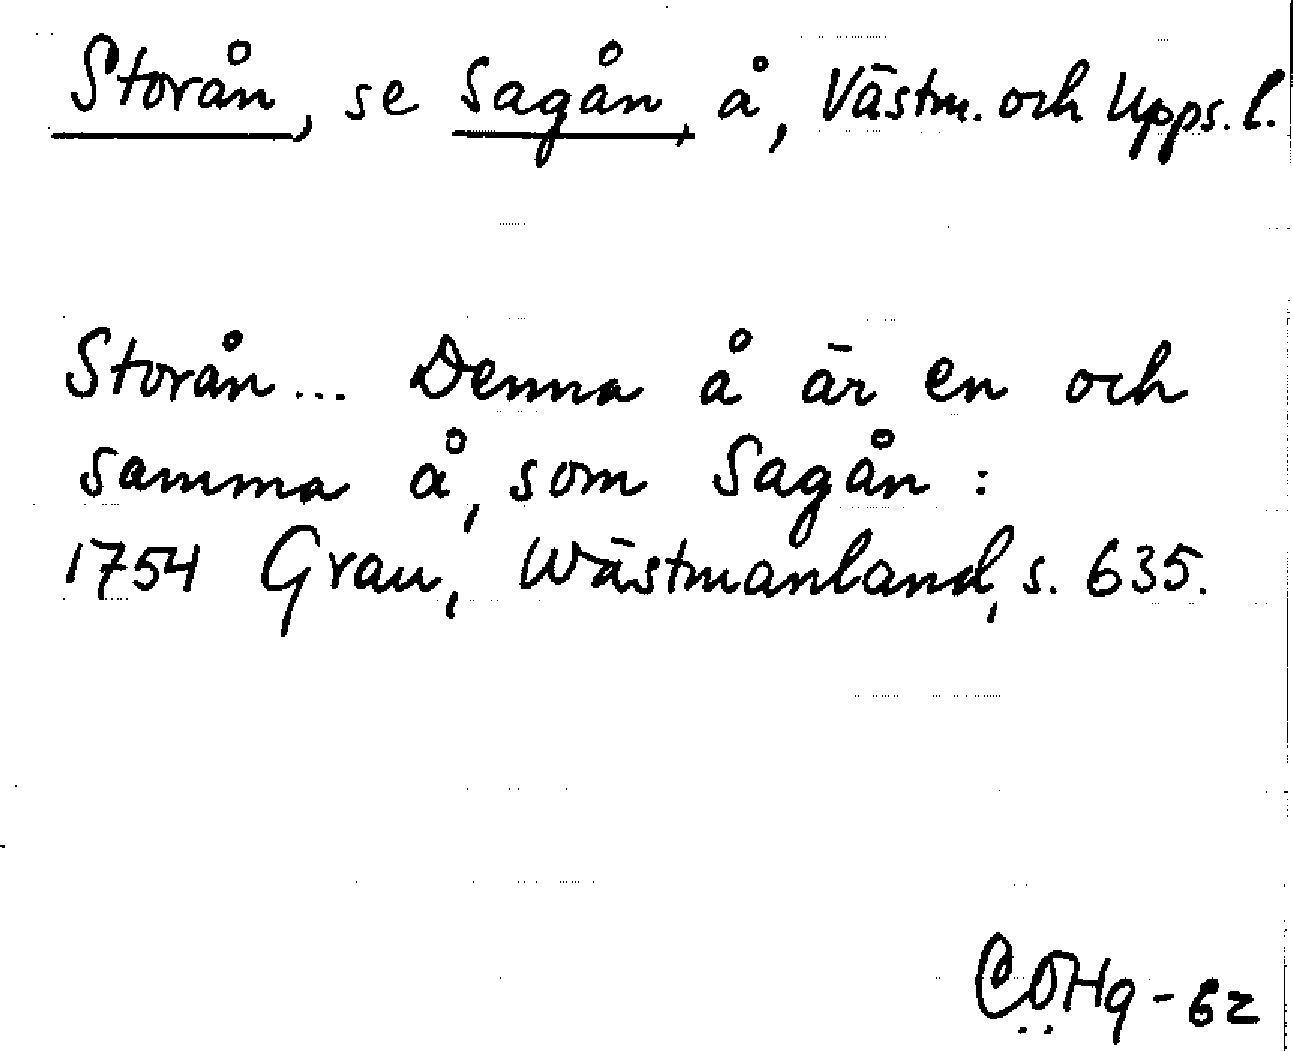 Storån, se Sagån, å, Västm. och Upps. l.
Storån... Denna å är en och
samma å, som Sagån :
1754 Grau, Wästmanland, s. 635.
CÖHg - 62